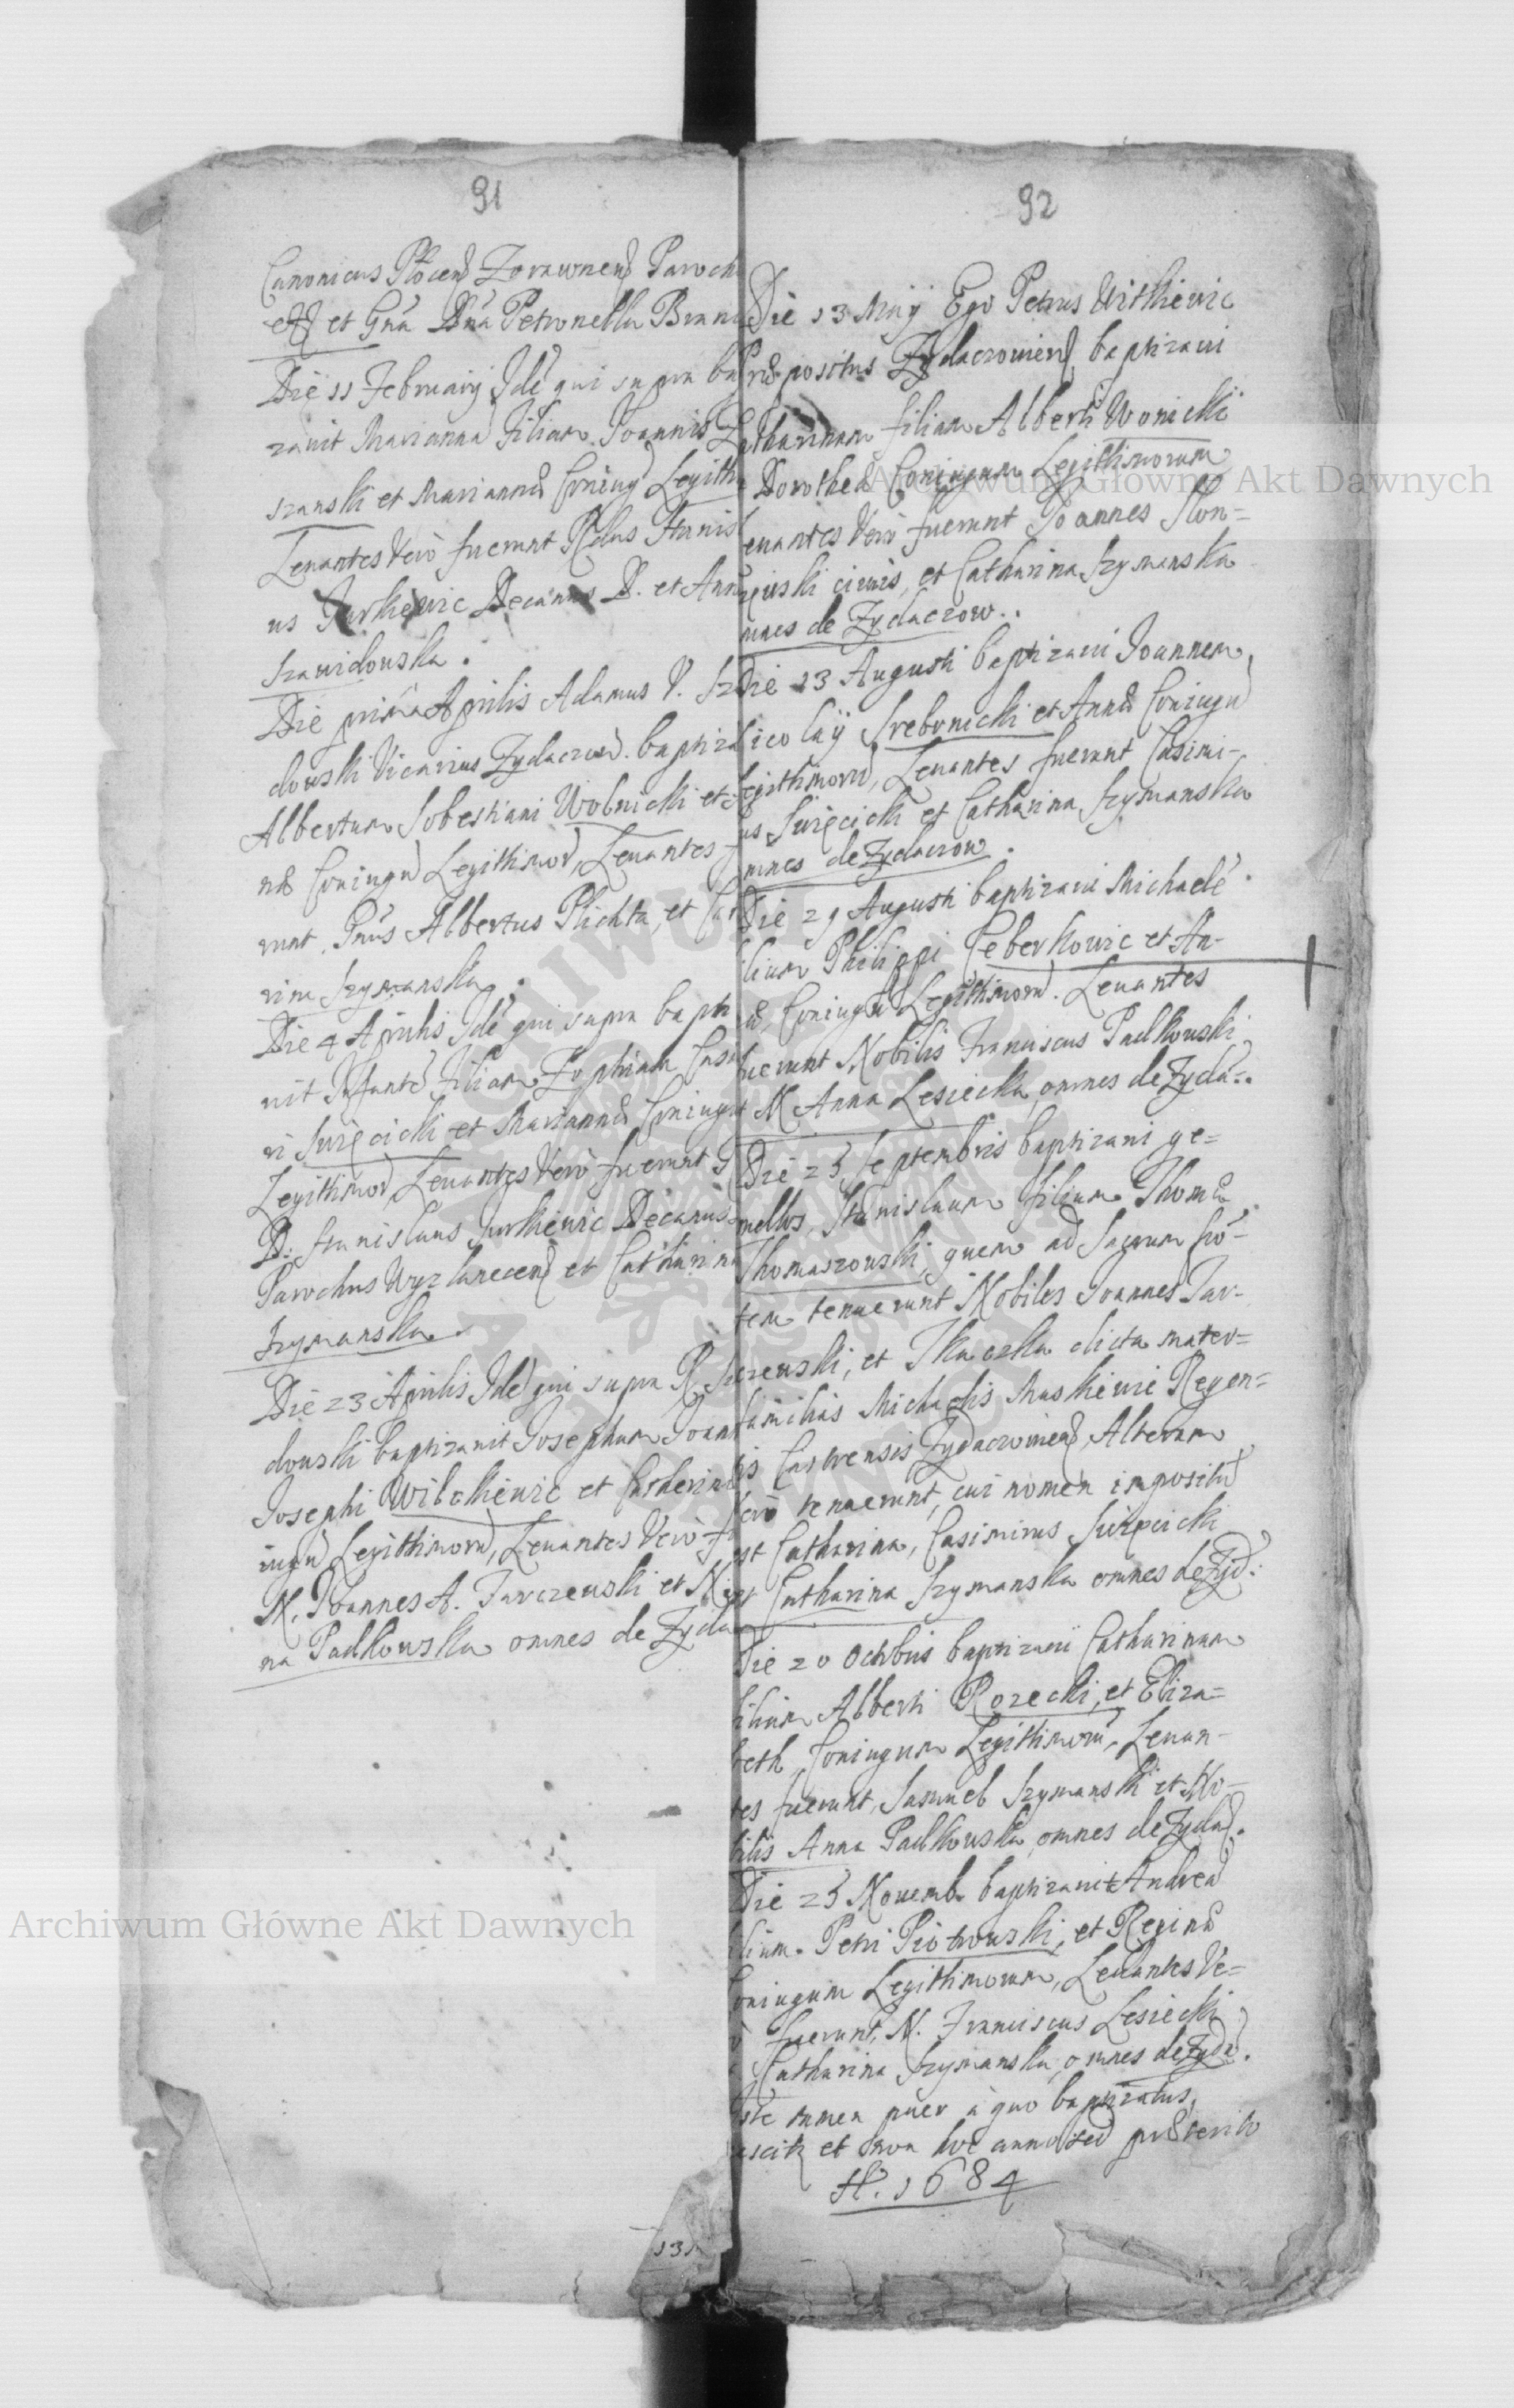 91
Canonicus Płocen Zorawnen Paroch
et Gna Dna Petronella Brani
Die 11 February Idē qui supra ba
zavit Marianna Filiam Joannis
szanski et Mariannæ Coniug Legith
Levantes Vero fuerunt Rdus Stanis
us Jurkiewic Decanus D. et Ann
Szawidowska.
Die prima Aprilis Adamus V. Sz
dowski Vicarius Zydaczow. baptiza
Albertum Sobestiani Wolnicki et
næ Coniugū Legithimor, Levantes
runt. Albertus Plichta, et Cat
rina Szymanska.
Die 4 Aprilis Idē qui supra bapti
vit Infantē Filiam Zophiam Casi
ri Swięcicki et Mariannæ Coniugū
Legithimor, Levantes Vero fuerunt
D. Stanislaus Jurkiewic Decanus
Parochus et Catharina
Szymanska.
Die 23 Aprilis Idē qui supra R. Sz
dowski baptizavit Josephum Joan
Josephi Wilckiewic et Catherinæ
iugū Legithimorū, Levantes Vero f
N. Joannes A. Jarczewski et N.
na Padkowska omnes de Zyda
131
92
Die 13 Maÿ Ego Petrus Witkiewic
Præpositus Zydaczowien baptizavi
Catharinam filiam Alberti Wonicki
Dorotheæ Coniugum Legithimorum
evantes Vero fuerunt Joannes Slon=
civis, et Catharina Szymanska
mnes de Zydaczow.
Die 13 Augusti baptizavi Joannem
icolaÿ Srebrnicki et Annæ Coniugū
egithimorū, Levantes fuerunt Casimi-
us Swięcicki et Catharina Szymanska
mnes de Zydaczow.
Die 29 Augusti baptizavi Michaelē
ilium Philippi Ceberkowic et An-
æ, Coniugū Legithimorū. Levantes
fuerunt Nobilis Franciscus Padkowski
et N Anna Lesiecka, omnes de Zyda:.
Die 23 Septembris baptizavi ge=
mellos, Stanislaum filium Thomæ
Thomaszowski, quem ad Sacrum fō-
tem tenuerunt Nobiles Joannes Jar-
czewski, et Tkaczka dicta mater=
familias Michaelis Maskiewic Regen=
tis Castrensis Zydaczowien, Alteram
vero tenuerunt, cui nomen impositū
est Catharina, Casimirus Swięcicki
et Catharina Szymanska omnes de Zyd:
Die 20 Octobris baptizavi Catharinam
filiam Alberti Rozecki, et Eliza=
beth, Coniugum Legithimorū, Levan-
tes fuerunt, Samuel Szymanski et No-
bilis Anna Padkowska, omnes de Zyda.
Die 23 Novemb. baptizavit Andreā
ilium Petri Piotrowski, et Reginæ
oniugum Legithimorum, Levantes Ve=
ro fuerunt, N. Franciscus Lesiecki
Catharina Szymanska, omnes de Zyda.
Iste tamen puer à quo baptizatus,
et non hoc anno sed præterito
A. 1684
Archiwum Główne Akt Dawnych
Archiwum Główne Akt Dawnych